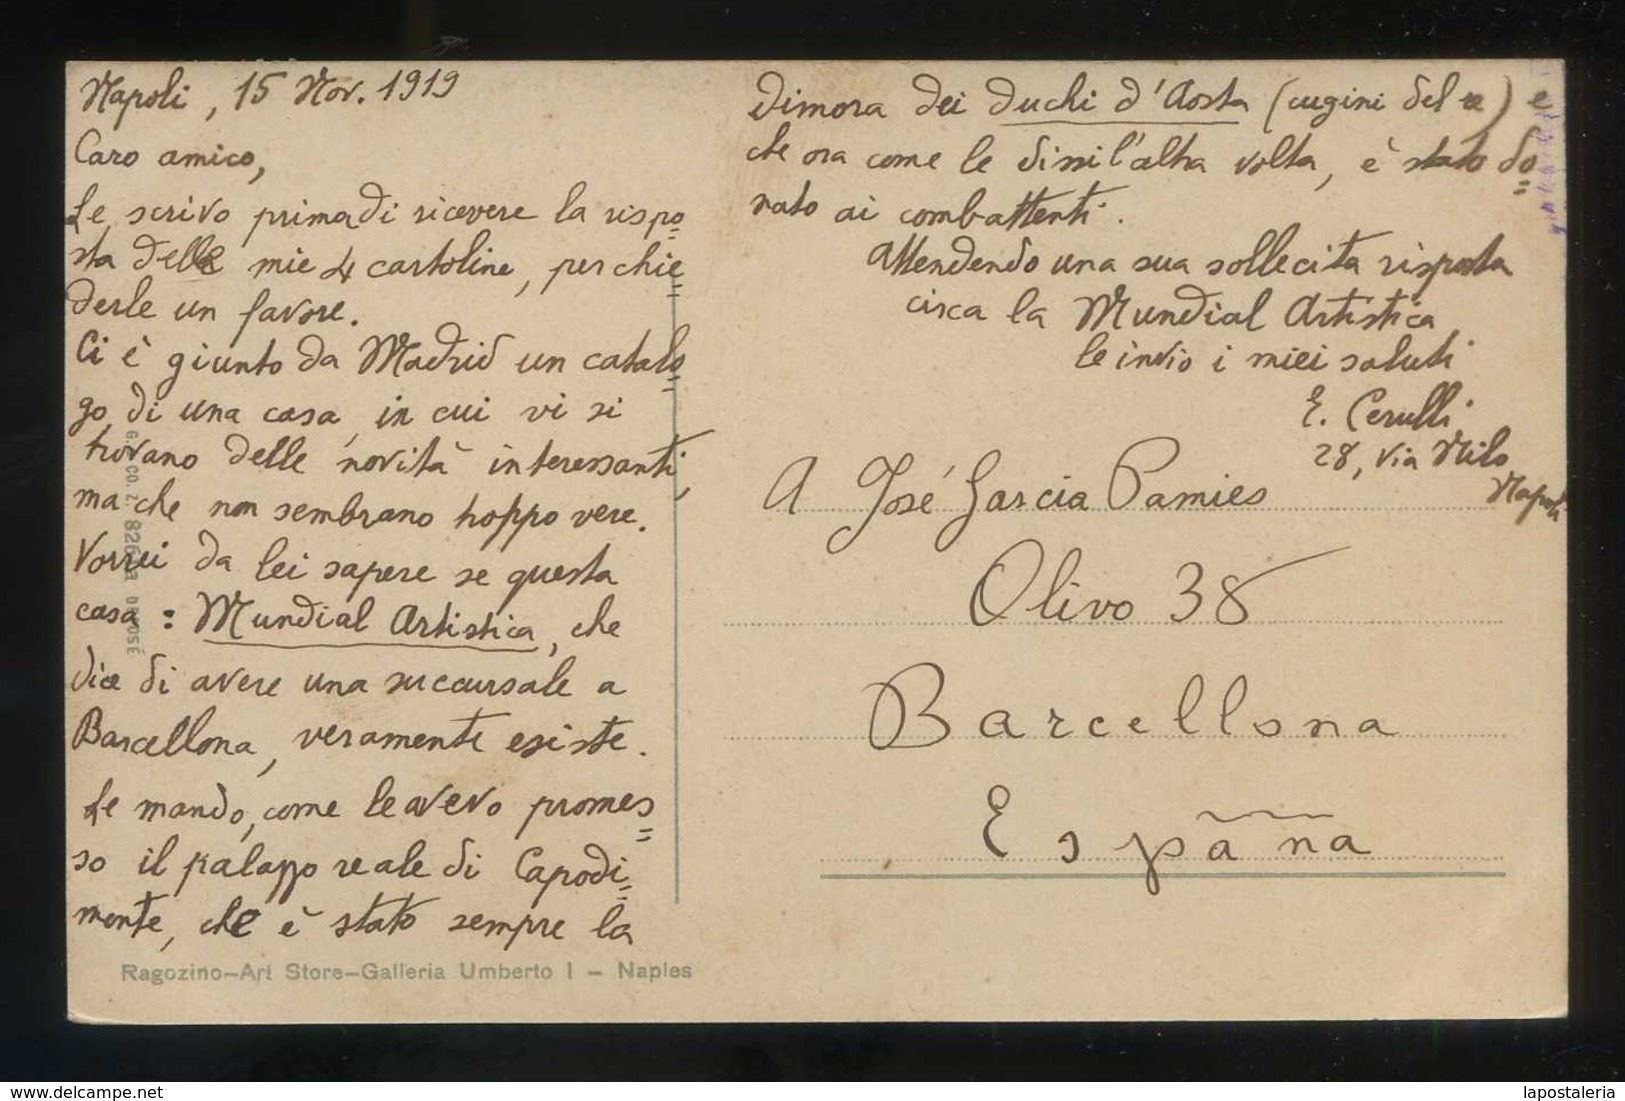 Napoli, 15 Nov. 1919
Caro amico,
Le scrivo prima di ricevere la rispo=
sta delle mie 4 cartoline, per chie=
derle un favore.
Ci è giunto da Madrid un catalo=
go di una casa, in cui vi si
trovano delle novità interessanti,
ma che non sembrano troppo vere.
Vorrei da lei sapere se questa
casa: Mundial Artistica, che
dice di avere una succursale a
Barcellona, veramente esiste.
Le mando, come le avevo promes=
so il palazzo reale di Capodi=
monte, che è stato sempre la
Ragozino-Art Store-Galleria Umberto I - Naples
dimora dei duchi d'Aosta (cugini del re) e
che ora come le dissi l'altra volta, è stato do=
nato ai combattenti.
Attendendo una sua sollecita risposta
circa la Mundial Artistica
le invio i miei saluti
E. Cerulli
28, Via Nilo
Napoli
A José Garcia Pamies
Olivo 38
Barcellona
España
DÉPOSÉ
www.delcampe.net
lapostaleria